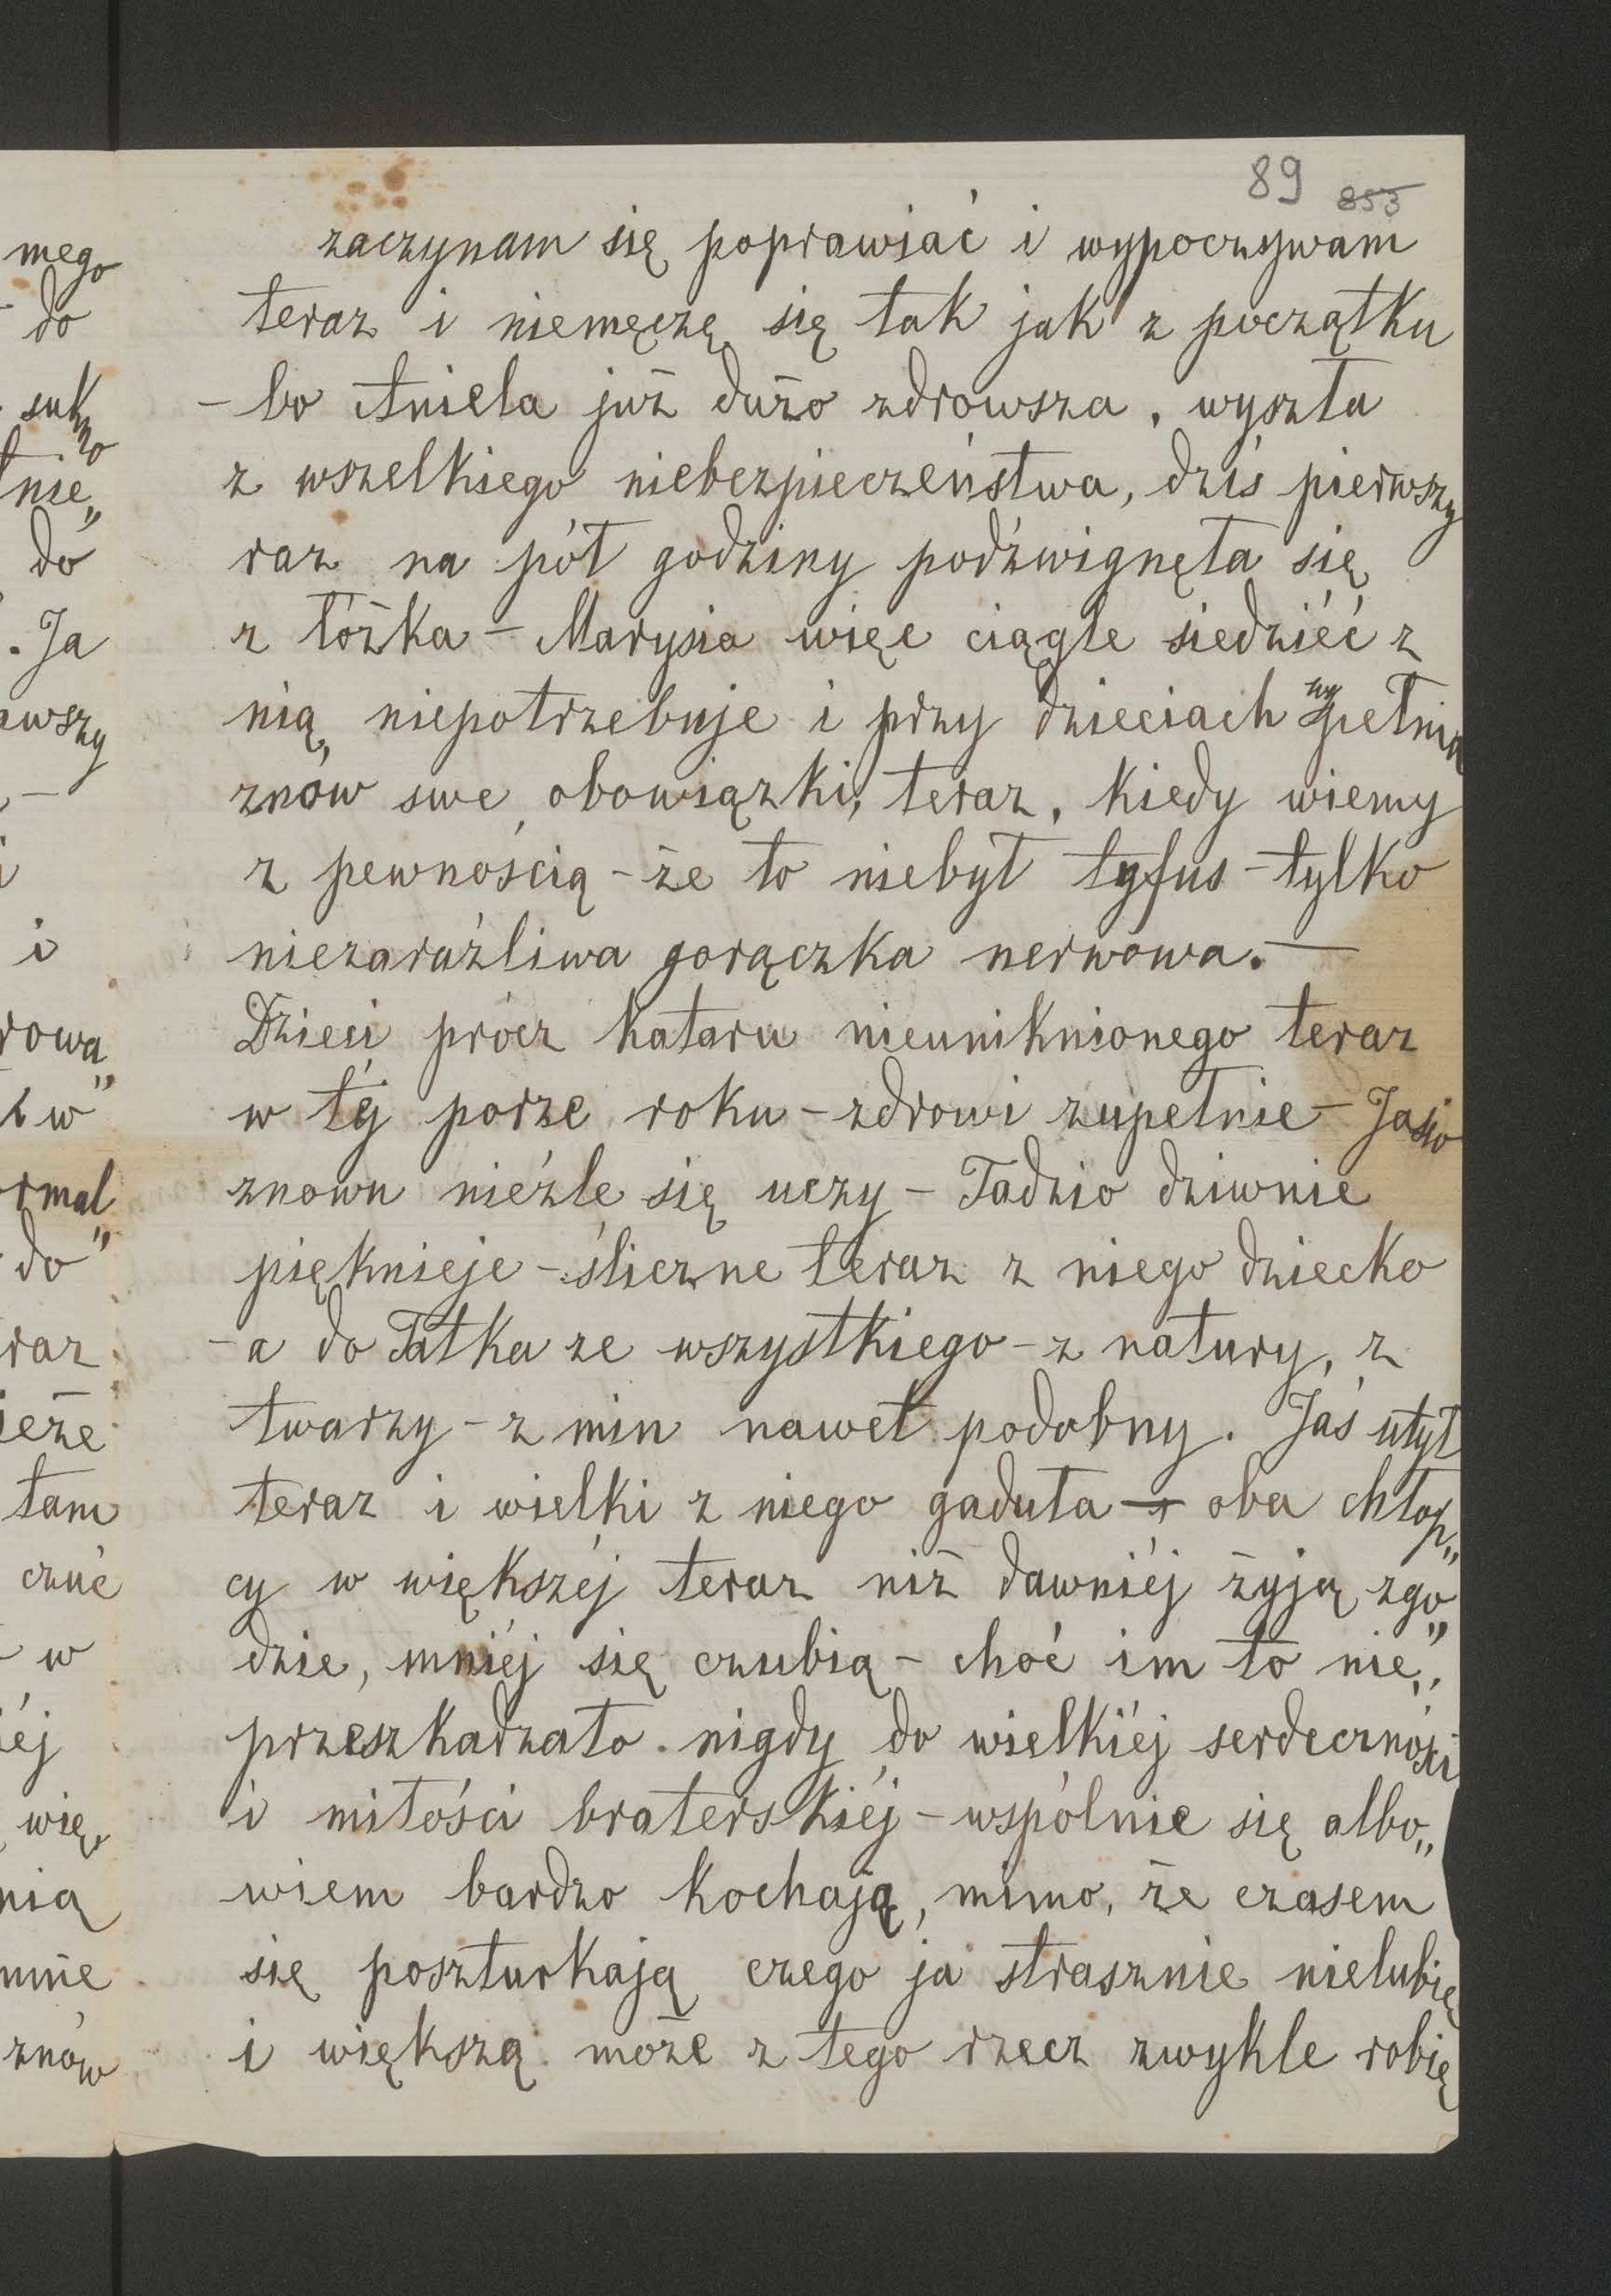 89 853
zaczynam się poprawiać i wypoczywam
teraz i niemęczę się tak jak z początku
- bo Aniela już dużo zdrowsza, wyszła
z wszelkiego niebezpieczeństwa, dziś pierwszy
raz na pół godziny podźwignęła się
z łóżka - Marysia więc ciągle siedziéć z
nią niepotrzebuje i przy dzieciach wypełnia
znów swe obowiązki, teraz, kiedy wiemy
z pewnością - że to niebył tyfus - tylko
niezaraźliwa gorączka nerwowa. —
Dzieci prócz kataru nieuniknionego teraz
w téj porze roku - zdrowi zupełnie - Jasio
znowu nieźle się uczy - Tadzio dziwnie
pięknieje - śliczne teraz z niego dziecko
- a do Tatka ze wszystkiego - z natury, z
twarzy - z min nawet podobny. Jaś utył
teraz i wielki z niego gaduła - oba chłop„
cy w większéj teraz niż dawniéj żyją zgo„
dzie, mniéj się czubią - choć im to nie„
przeszkadzało nigdy do wielkiéj serdeczności
i miłości braterskiéj - wspólnie się albo„
wiem bardzo kochają, mimo, że czasem
się poszturkają czego ja strasznie nielubię
i większą może z tego rzecz zwykle robię
mego
do
sukno
do
. Ja
i
do
raz
tam
czuć
w
znów